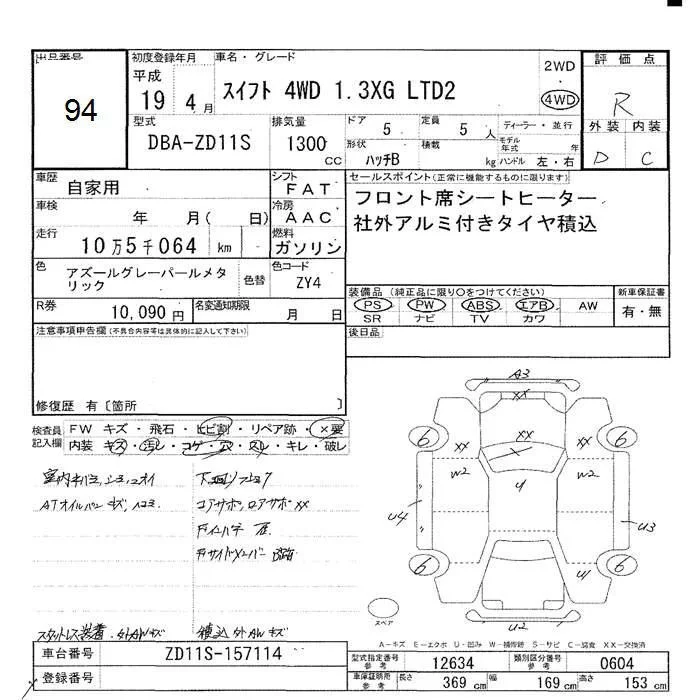 出品番号
94
初度登録年月
平成
19 4 月
車名・グレード
スイフト 4WD 1.3XG LTD2
2WD
4WD
評価点
R
外装 内装
D C
型式
DBA-ZD11S
排気量
1300
CC
ドア
5
定員
5 人
ディーラー・並行
形状
ハッチB
積載
kg
モデル年式
年
ハンドル 左・右
車歴
自家用
シフト
FAT
車検
年 月( 日)
冷房
AAC
走行
10万5千064 km
燃料
ガソリン
色
アズールグレーパールメタリック
色替
色コード
ZY4
R券
10,090 円
名変通知期限
月 日
セールスポイント(正常に機能するものに限ります)
フロント席シートヒーター
社外アルミ付きタイヤ積込
装備品(純正品に限り○をつけてください)
PS PW ABS エアB AW
SR ナビ TV カワ
新車保証書
有・無
後日品
注意事項申告欄(不具合内容等は具体的に記入して下さい)
修復歴 有〔箇所 〕
検査員記入欄
FW キズ・飛石・ヒビ割・リペア跡・×要
内装 キズ・汚レ・コゲ・穴・スレ・キレ・破レ
ATオイルパン キズ、ヘコミ
コアサポ、ロアサポ XX
スタットレス装着、外AWキズ
積込外AWキズ
A3
XX
XX
XX
XX
6
6
6
6
W2
W2
U
U4
U3
U1
U2
スペア
A-キズ E-エクボ U-凹み W-補修跡 S-サビ C-腐食 XX-交換済
車台番号
ZD11S-157114
登録番号
型式指定番号
参考
12634
類別区分番号
参考
0604
車体保証所
参考
長さ
369 cm
幅
169 cm
高さ
153 cm